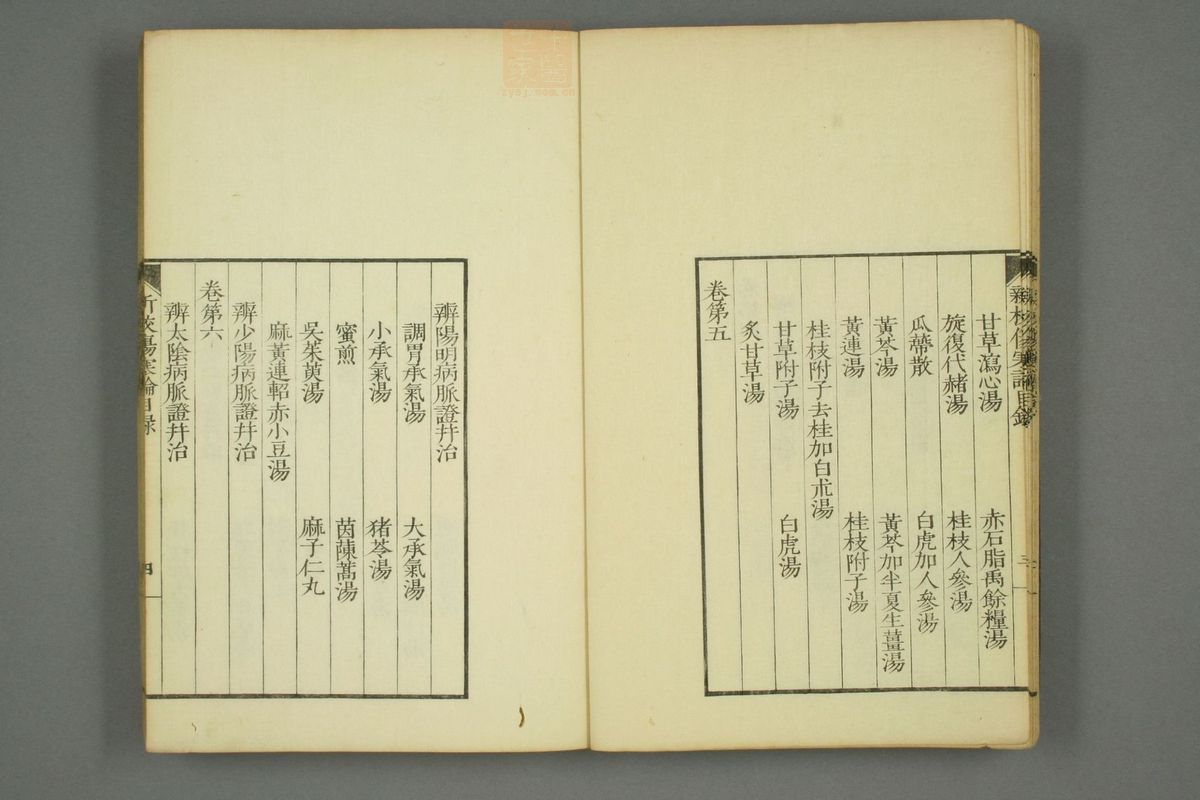 新校傷寒論目錄
甘草瀉心湯 赤石脂禹餘糧湯
旋復代赭湯 桂枝人參湯
瓜蔕散 白虎加人參湯
黃芩湯 黃芩加半夏生薑湯
黃連湯 桂枝附子湯
桂枝附子去桂加白朮湯
甘草附子湯 白虎湯
炙甘草湯
卷第五
辨陽明病脈證并治
調胃承氣湯 大承氣湯
小承氣湯 猪苓湯
蜜煎 茵蔯蒿湯
吳茱萸湯 麻子仁丸
麻黃連軺赤小豆湯
辨少陽病脈證并治
卷第六
辨太陰病脈證并治
新校傷寒論目錄
四
zysj.com.cn